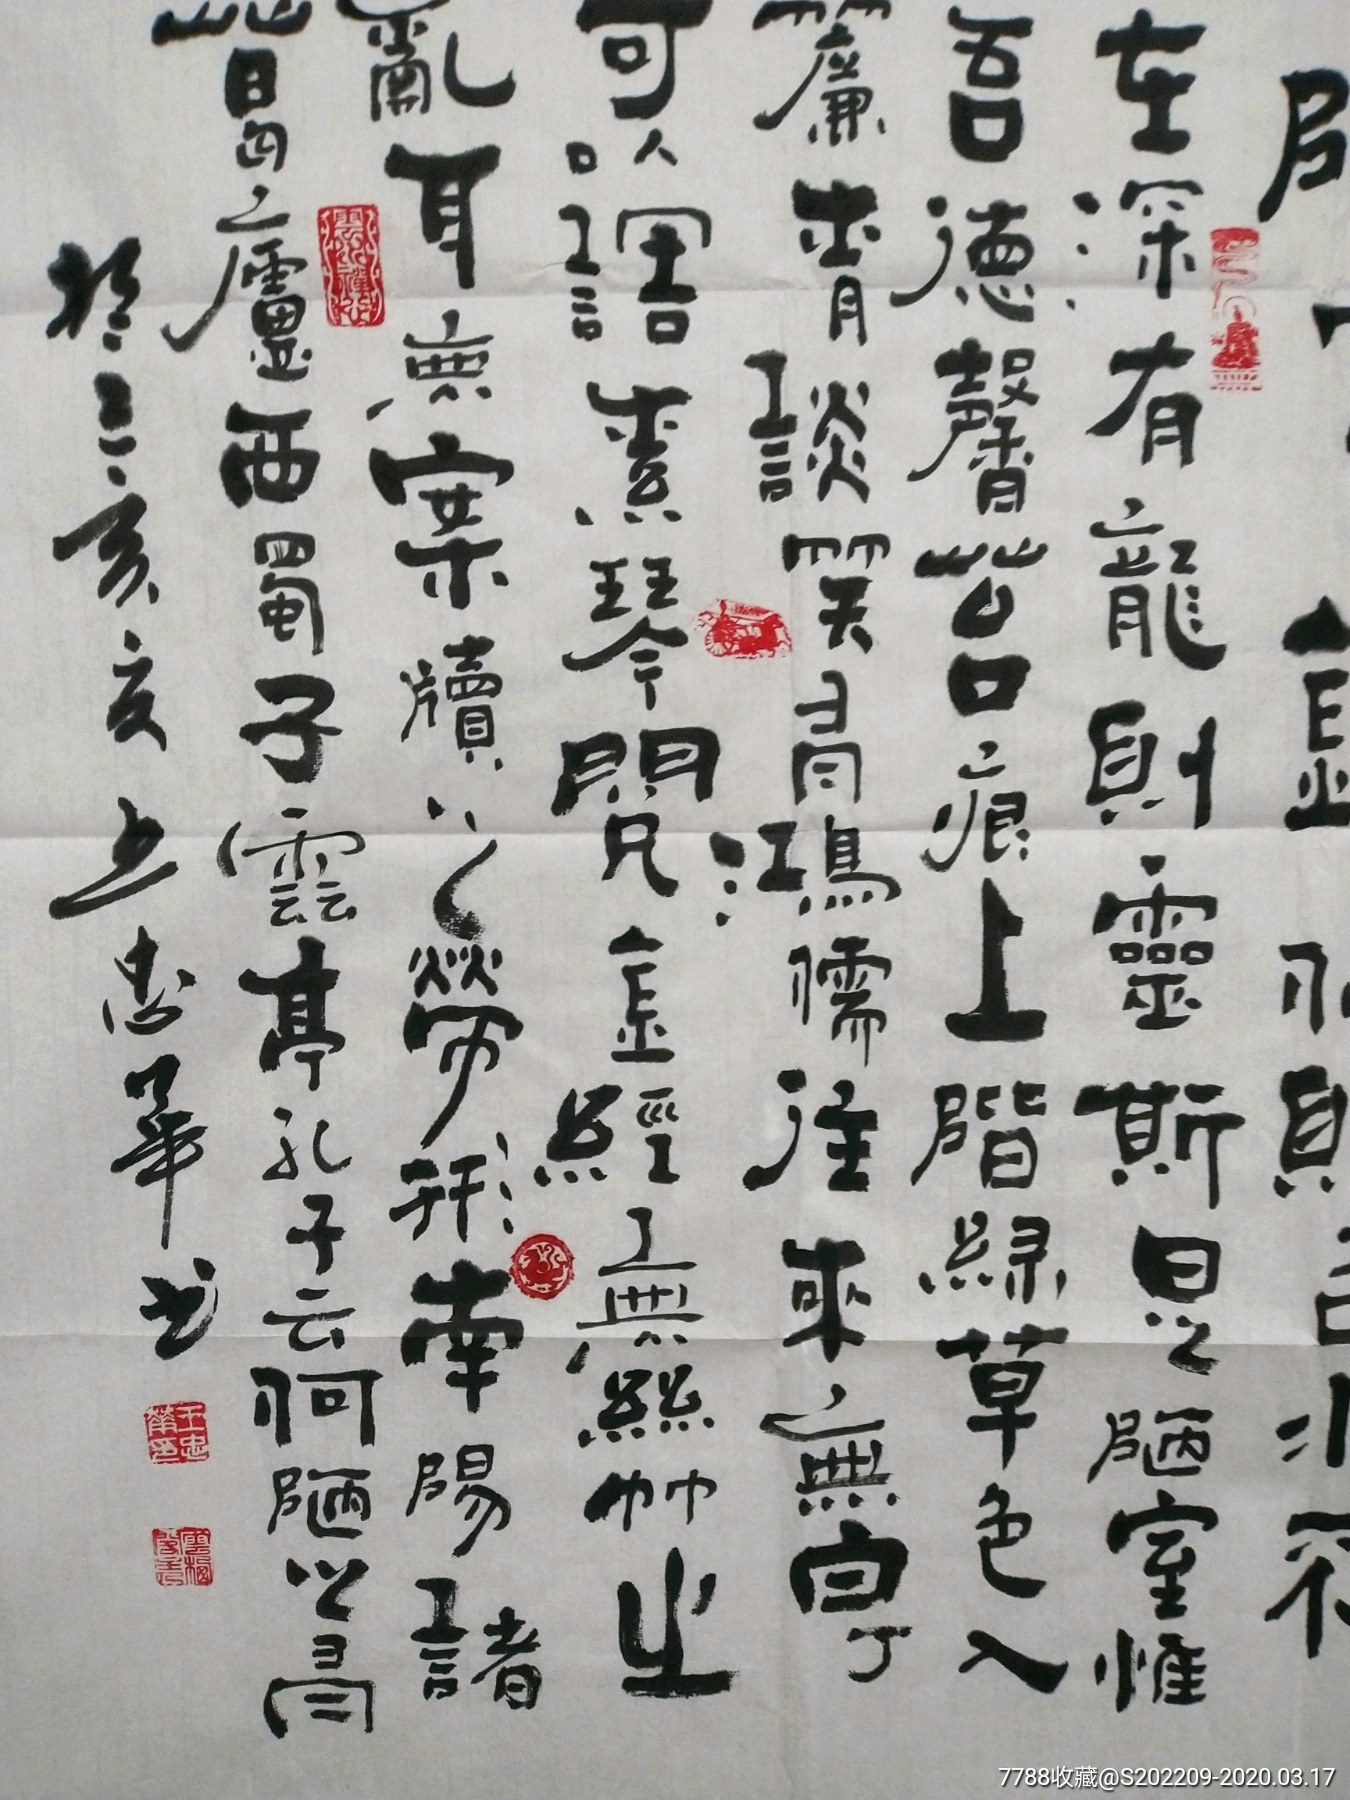 則名水不
在深有龍則靈斯是陋室惟
吾德馨苔痕上階綠草色入
簾青談笑有鴻儒往來無白丁
可以調素琴閱金經無絲竹之
亂耳無案牘之勞形南陽諸
葛之廬西蜀子雲亭孔子云何陋之有
於己亥忠華书
王忠華印
7788收藏@S202209-2020.03.17